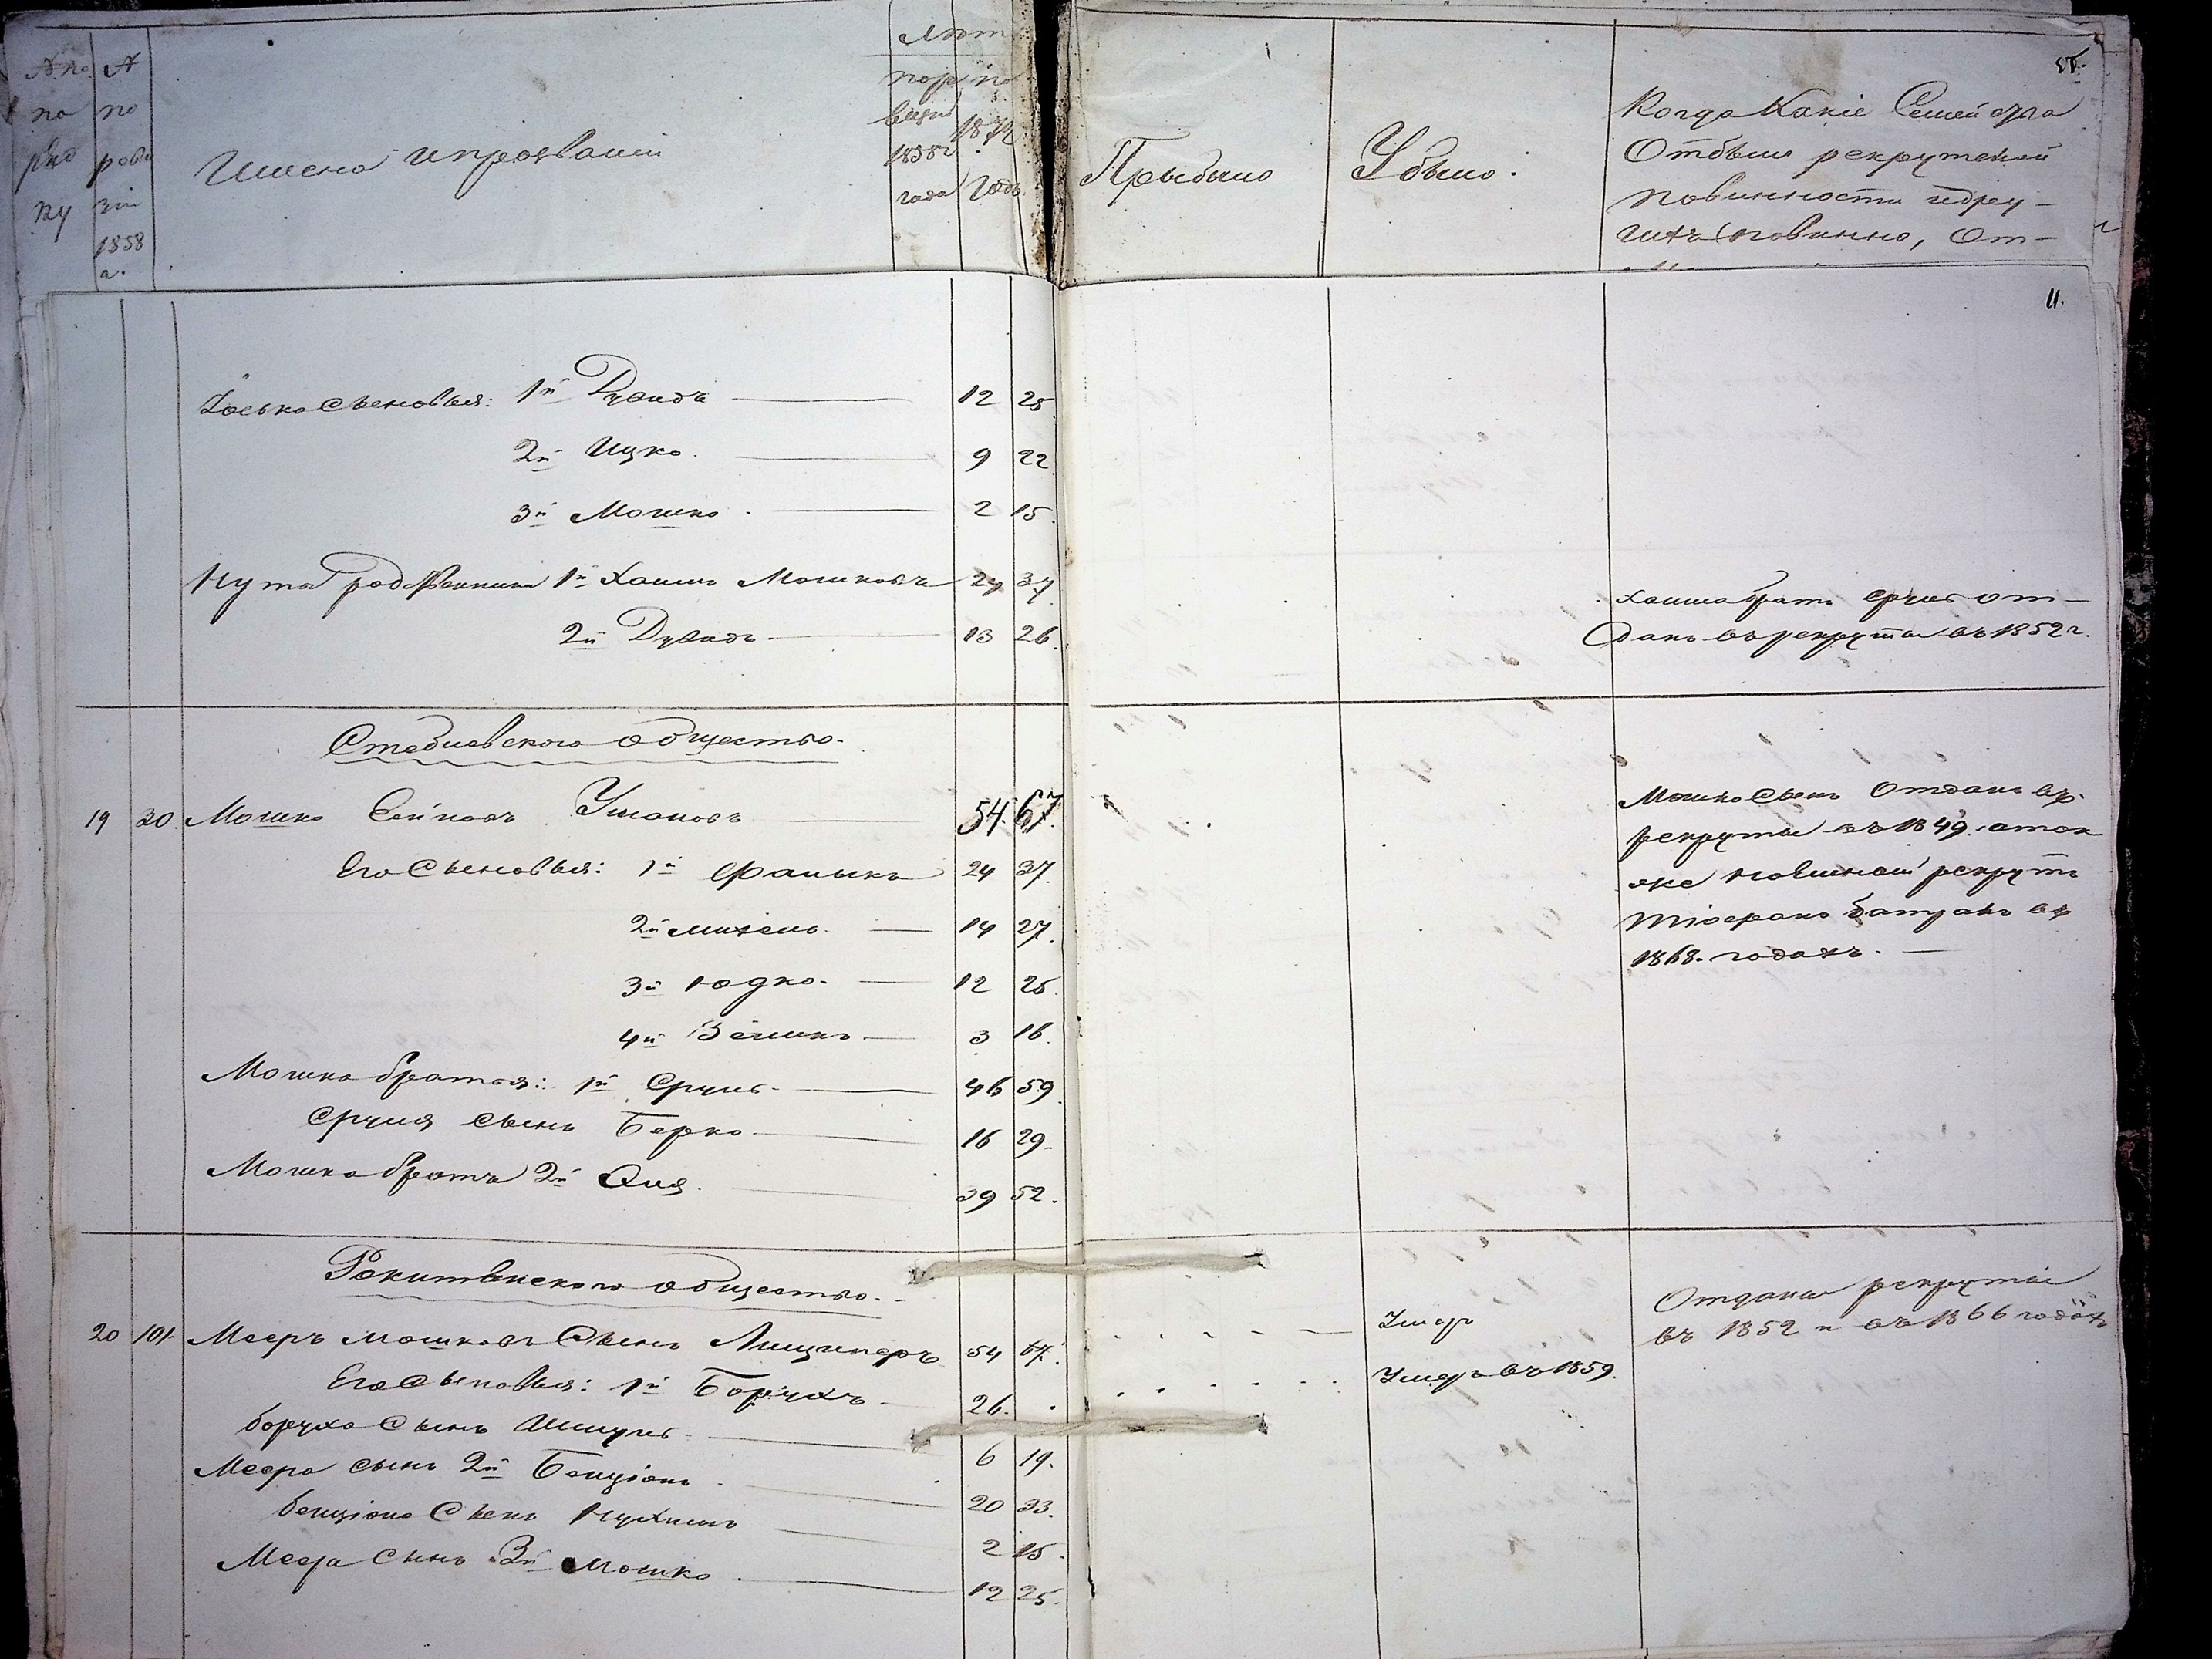 № по
по
ряд
ку
№
по
реви
зіи
1858
г.
Имена и прозваніи
Лѣтъ
по реви
визіи
1858
года
по
1871
Годъ
Прыбыло
Убыло.
Когда какіе Семейства
Отбыли рекрутской
повинности и др
повинно, От-
11.
Іосько сыновья: 1й Дувидъ 12 25
2й Ицко. 9 22
3й Мошко. 2 15.
Нута родственники 1й Хаимъ Мошковъ 24 37
2й Дувидъ. 13 26.
Хаима братъ Сруль от-
данъ въ рекруты въ 1852 г.
Стебліевского общество.
19 30. Мошко Сойковъ Умановъ 54. 67.
Его Сыновья: 1й 24 37.
2й Михель. 14 27.
3й Юдко. 12 25.
4й Зельикъ 3 16.
Мошка братья: 1й Сруль. 46 59.
Сруля сынъ Берко. 16 29.
Мошка братъ 2й 39 52.
Мошка Сынъ Отданъ въ
рекруты въ 1849. а так
же рекрут
въ
1868. годахъ.
Рокитянского общество.
20 101. Мееръ Мошковъ Сынъ Лищинеръ 54 67. Умеръ
Его Сыновья: 1й Борухъ 26. Умеръ въ 1859.
Боруха Сынъ Шмуль. 6 19.
Меера сынъ 2й Бенціонъ. 20 33.
Бенціона Сынъ Нухимъ 2 15.
Меера сынъ 3й Мошко. 12 25.
Отданы рекруты
въ 1852 и въ 1866 годахъ